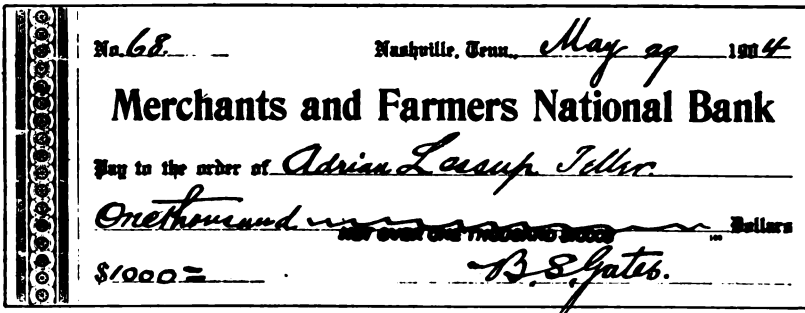 No. 68. Nashville, Tenn., May 29 1904
Merchants and Farmers National Bank
Pay to the order of Adrian Lessup Teller.
One thousand Dollars
NOT OVER ONE THOUSAND $1000$
$1000= B. S. Gates.